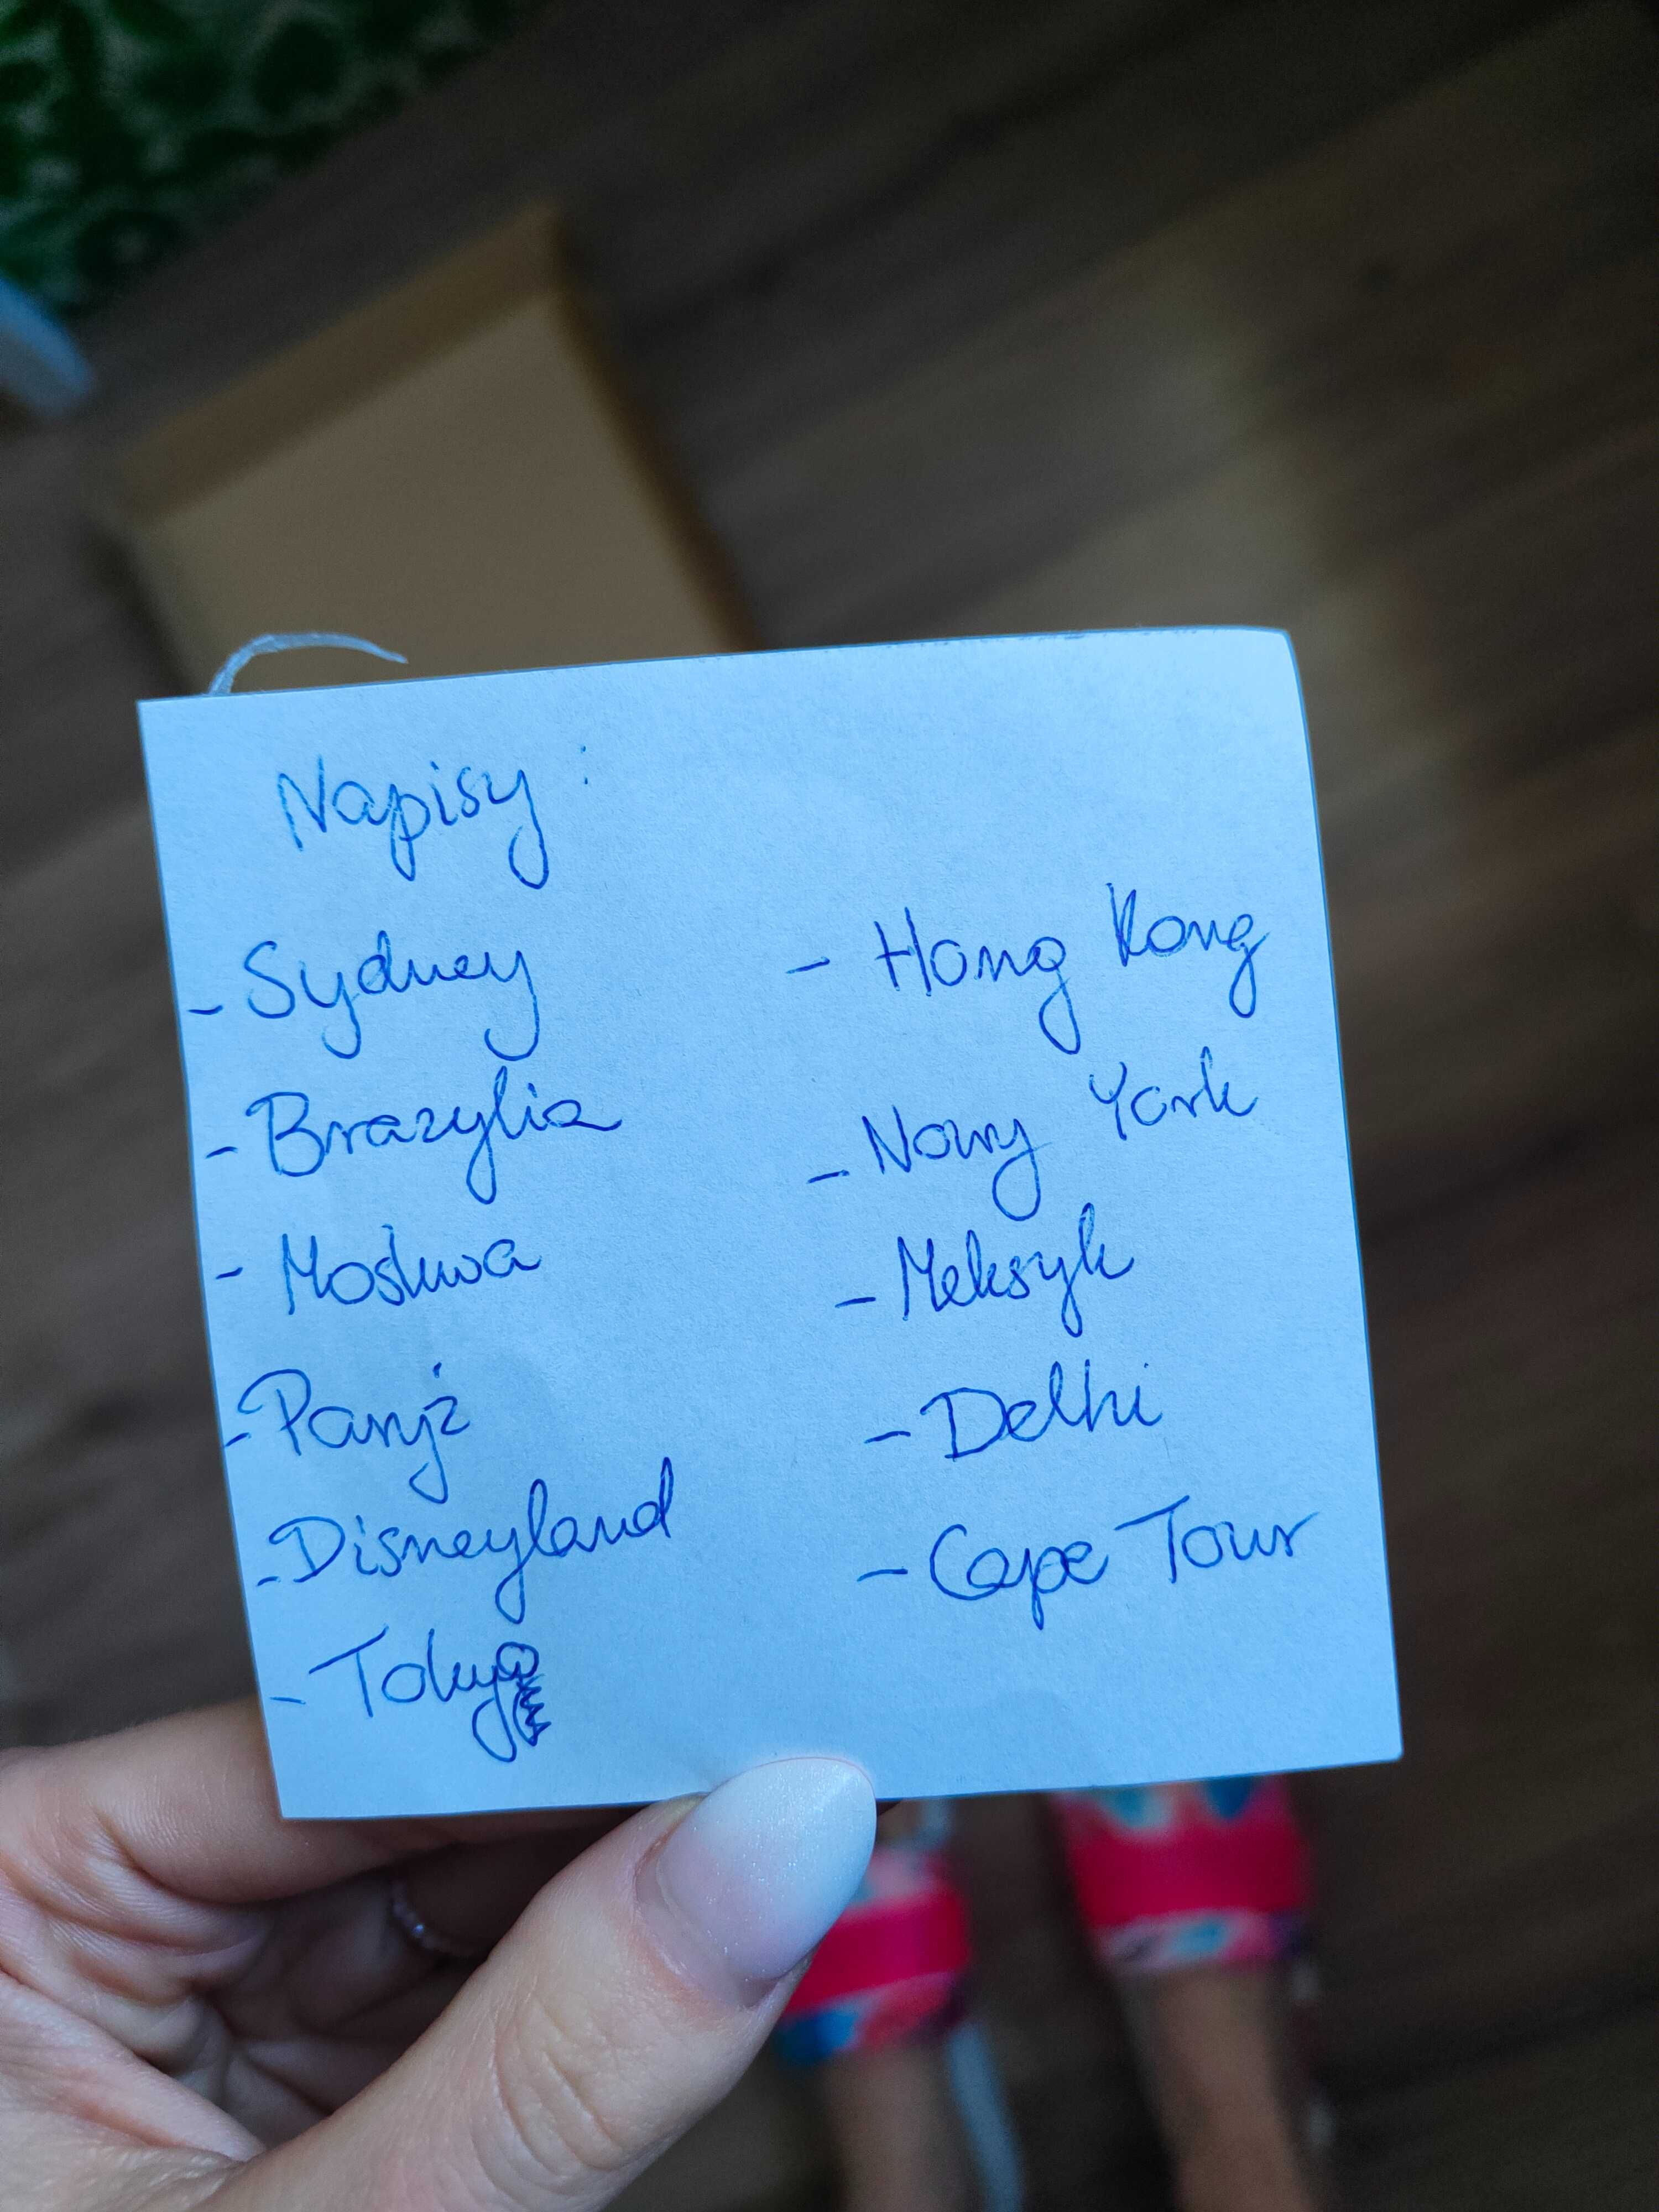 Napisy:
- Sydney
- Brazylia
- Moskwa
- Paryż
- Disneyland
- Tokyo
- Hong Kong
- Nowy York
- Meksyk
- Delhi
- Cape Tour